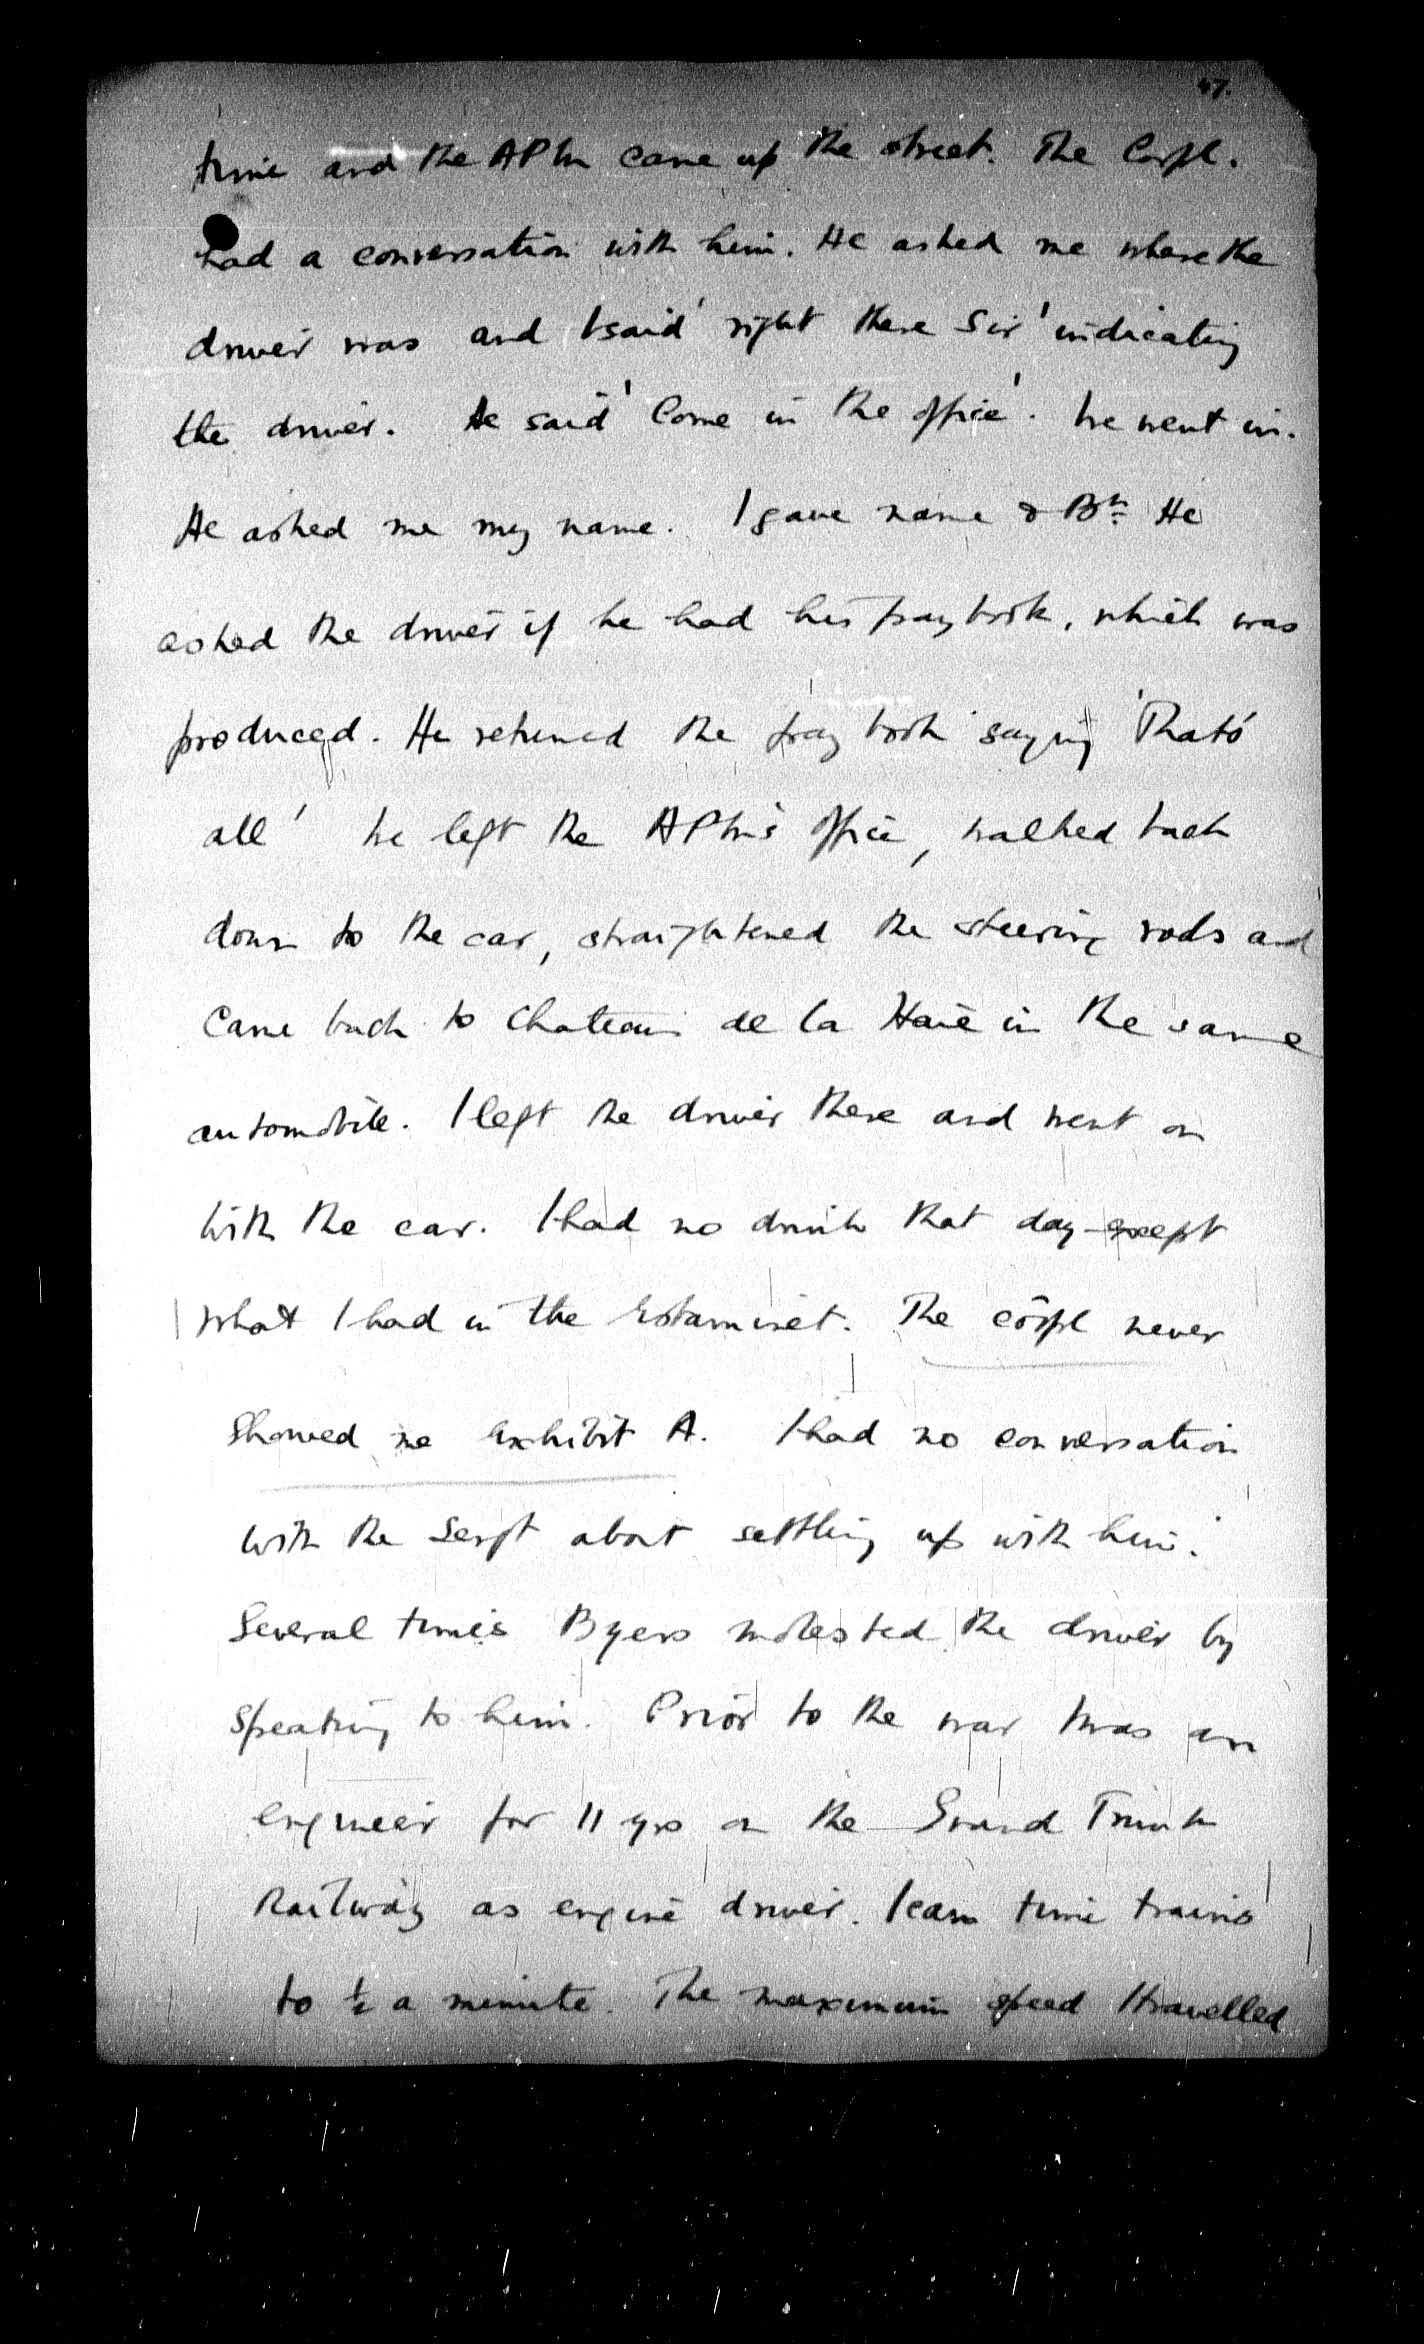 47.
time and the APM came up the street. The Corpl.
had a conversation with him. He asked me where the
driver was and I said 'right there Sir' indicating
the driver. He said 'Come in the office'. We went in.
He asked me my name. I gave name & Bn. He
asked the driver if he had his paybook, which was
produced. He returned the pay book saying 'That's
all' We left the APM's office, walked back
down to the car, straightened the steering rods and
came back to Chateau de la Haie in the same
automobile. I left the driver there and went on
with the car. I had no drink that day except
what I had in the Estaminet. The corpl never
showed me Exhibit A. I had no conversation
with the Sergt about settling up with him.
Several times Byers molested the driver by
speaking to him. Prior to the war I was an
engineer for 11 yrs on the Grand Trunk
Railway as engine driver. I can time trains
to ½ a minute. The maximum speed I travelled